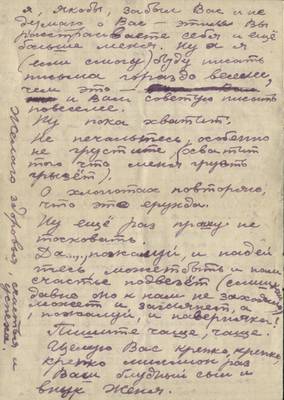 я, якобы, забыл Вас и не
думаю о Вас – этим Вы
расстраиваете себя и ещё
больше меня. Ну а я
(если смогу) буду писать
письма гораздо веселее,
чем это –
и Вам советую писать
повеселее.
Ну пока хватит.
Не печальтесь, особенно
не грустите (хватит
того что меня грусть
грызёт).
О хлопотах повторяю,
что это ерунда.
Ну ещё раз прошу не
тосковать.
Да..., пожалуй, и надей
тесь может быть и нам
счастье подвезёт (слишком
давно оно к нам не заходило,
может и заглянет, а
, пожалуй, и наверняка!
Пишите чаще, чаще.
Целую Вас крепко, крепко,
крепко миллион раз
Ваш блудный сын и
внук Женя.
Желаю здоровья, счастья и
успеха.